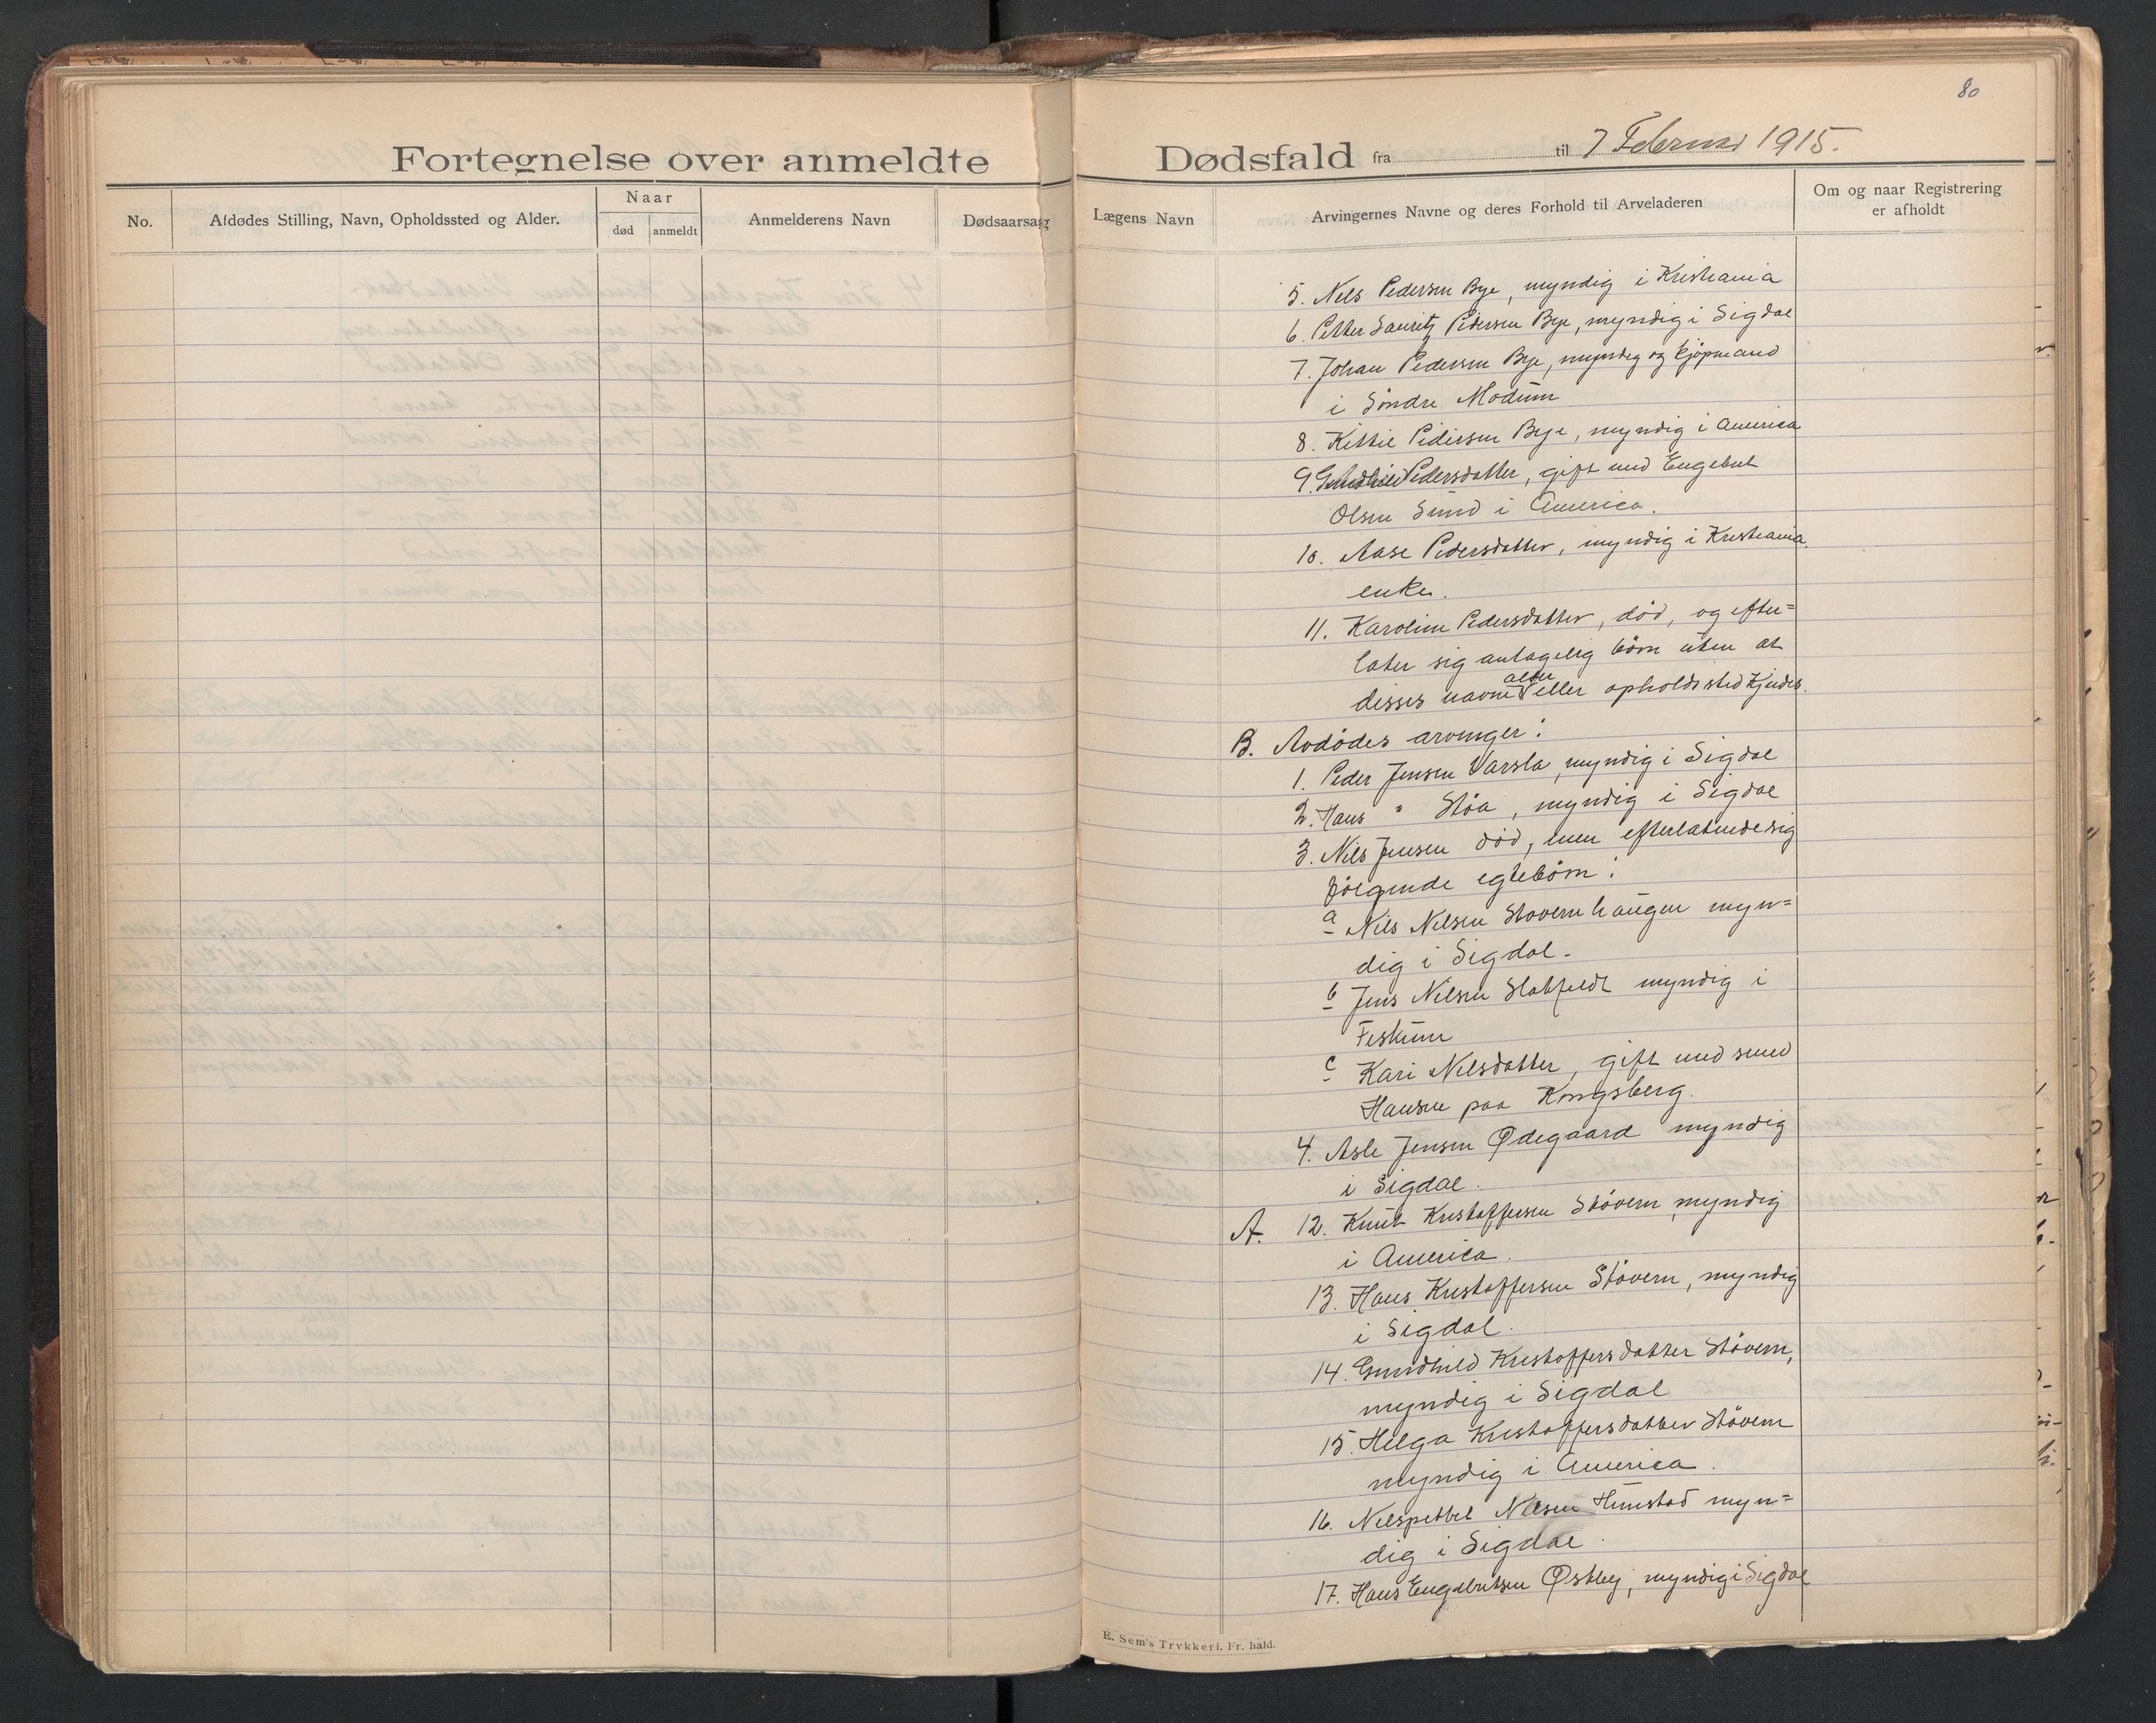 80
Fortegnelse over anmeldte Dødsfald fra til 7 Februar 1915.
No.
Afdødes Stilling, Navn, Opholdssted og Alder.
Naar
død
anmeldt
Anmelderens Navn
Dødsaarsag
Lægens Navn
Arvingernes Navne og deres Forhold til Arveladeren
Om og naar Registrering
er afholdt
5. Nels Pedersen Bye, myndig i Kristiania
6. Petter Lauritz Pedersen Bye, myndig i Sigdal
7. Johan Pedersen Bye, myndig og kjøpmand
i Søndre Modum
8. Kittil Pedersen Bye, myndig i America
9. Gundhild Pedersdatter, gift med Engebret
Olsen Lund i America.
10. Aase Pedersdatter, myndig i Kristiania,
enke.
11. Karoline Pedersdatter, død, og efter=
later sig antagelig børn uten at
disses navne alder eller opholdssted kjendes.
B. Avdødes arvinger:
1. Peder Jensen Varsla, myndig i Sigdal
2. Hans " Støa, myndig i Sigdal
3. Nils Jensen død, men efterlatende sig
følgende egtebørn:
a Nils Nilsen Stovernhaugen myn=
dig i Sigdal.
b Jens Nilsen Slatfeldt myndig i
Fiskum
c Kari Nilsdatter, gift med smed
Hansen paa Kongsberg.
4. Asle Jensen Ødegaard myndig
i Sigdal.
A. 12. Knut Kristoffersen Støvern, myndig
i America.
13. Hans Kristoffersen Støvern, myndig
i Sigdal.
14. Gundhild Kristoffersdatter Støvern,
myndig i Sigdal
15. Helga Kristoffersdatter Støvern
myndig i America.
16. Nilspettel Nilsen Hunstad myn=
dig i Sigdal.
17. Hans Engebretsen Østby, myndig i Sigdal
E. Sem's Trykkeri. Fr. hald.